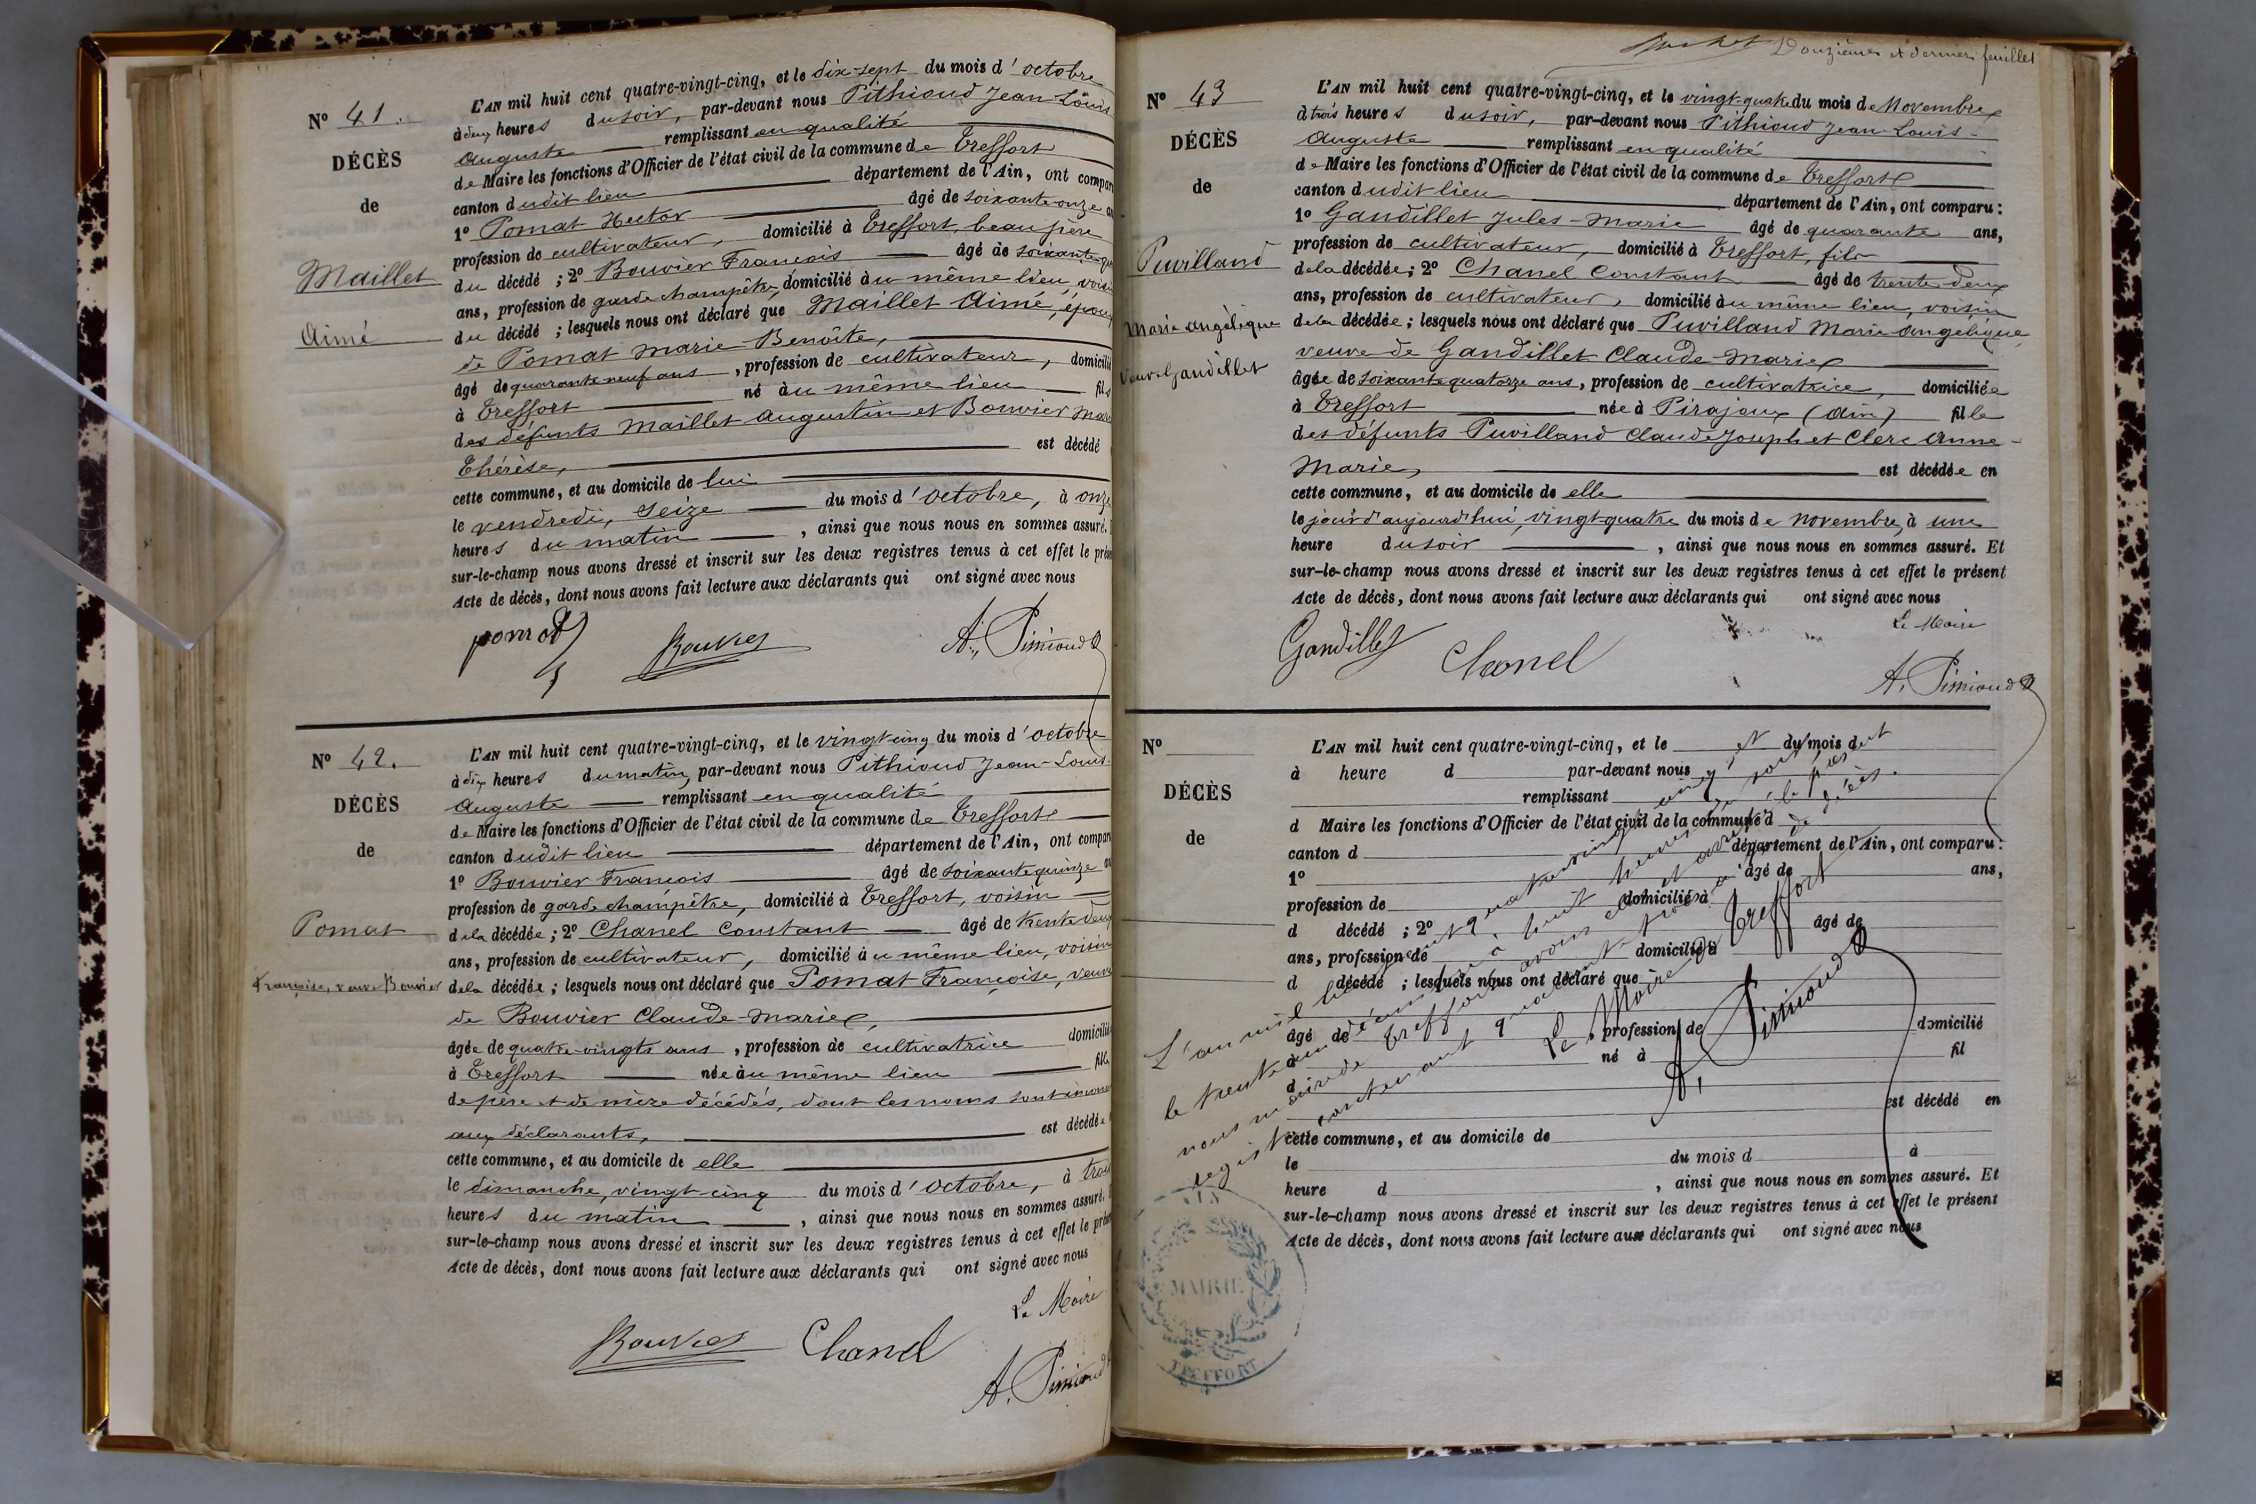 N° 41.
DÉCÈS
de
Maillet
Aimé
L'AN mil huit cent quatre-vingt-cinq, et le dix-sept du mois d'octobre
à deux heures du soir, par-devant nous Pithioud Jean-Louis
Auguste remplissant en qualité
de Maire les fonctions d'Officier de l'état civil de la commune de Treffort
canton dudit lieu département de l'Ain, ont compar
1° Pomat Hector âgé de soixante onze
profession de cultivateur, domicilié à Treffort, beau père
du décédé ; 2° Bouvier François âgé de soixante
ans, profession de garde champêtre, domicilié au même lieu, voisin
du décédé ; lesquels nous ont déclaré que Maillet Aimé, époux
de Pomat Marie Benoîte,
âgé de quarante neuf ans, profession de cultivateur, domicilié
à Treffort né au même lieu fils
des défunts Maillet Augustin et Bouvier Marie
Thérèse, est décédé
cette commune, et au domicile de lui
le vendredi, seize du mois d'octobre, à onze
heures du matin, ainsi que nous nous en sommes assuré.
sur-le-champ nous avons dressé et inscrit sur les deux registres tenus à cet effet le prés
Acte de décès, dont nous avons fait lecture aux déclarants qui ont signé avec nous
pomat Bouvier A. Pithioud
N° 42.
DÉCÈS
de
Pomat
Françoise, veuve Bouvier
L'AN mil huit cent quatre-vingt-cinq, et le vingt-cinq du mois d'octobre
à dix heures du matin, par-devant nous Pithioud Jean-Louis-
Auguste remplissant en qualité
de Maire les fonctions d'Officier de l'état civil de la commune de Treffort
canton dudit lieu département de l'Ain, ont compar
1° Bouvier François âgé de soixante quinze
profession de garde champêtre, domicilié à Treffort, voisin
de la décédée ; 2° Chanel Constant âgé de trente deux
ans, profession de cultivateur, domicilié au même lieu, voisin
de la décédée ; lesquels nous ont déclaré que Pomat Françoise, veuve
de Bouvier Claude-Marie,
âgée de quatre-vingts ans, profession de cultivatrice domicilié
à Treffort née au même lieu fille
de père et de mère décédés, dont les noms sont inconnus
aux déclarants, est décédée
cette commune, et au domicile de elle
le dimanche, vingt-cinq du mois d'octobre, à trois
heures du matin, ainsi que nous nous en sommes assuré.
sur-le-champ nous avons dressé et inscrit sur les deux registres tenus à cet effet le prés
Acte de décès, dont nous avons fait lecture aux déclarants qui ont signé avec nous
Le Maire
Bouvier Chanel A. Pithioud
Douzième et dernier feuillet
N° 43
DÉCÈS
de
Puvilland
Marie Angélique
Veuve Gandillet
L'AN mil huit cent quatre-vingt-cinq, et le vingt-quatre du mois de Novembre
à trois heures du soir, par-devant nous Pithioud Jean-Louis-
Auguste remplissant en qualité
de Maire les fonctions d'Officier de l'état civil de la commune de Treffort
canton dudit lieu département de l'Ain, ont comparu :
1° Gandillet Jules-Marie âgé de quarante ans,
profession de cultivateur, domicilié à Treffort, fils
de la décédée ; 2° Chanel Constant âgé de trente-deux
ans, profession de cultivateur, domicilié au même lieu, voisin
de la décédée ; lesquels nous ont déclaré que Puvilland Marie-Angélique,
veuve de Gandillet Claude-Marie
âgée de soixante quatorze ans, profession de cultivatrice, domiciliée
à Treffort née à Pirajoux (Ain) fille
des défunts Puvilland Claude Joseph et Clerc Anne-
Marie, est décédée en
cette commune, et au domicile de elle
le jour d'aujourd'hui, vingt-quatre du mois de novembre, à une
heure du soir, ainsi que nous nous en sommes assuré. Et
sur-le-champ nous avons dressé et inscrit sur les deux registres tenus à cet effet le présent
Acte de décès, dont nous avons fait lecture aux déclarants qui ont signé avec nous
Le Maire
Gandillet Chanel
A. Pithioud
N°
DÉCÈS
de
L'AN mil huit cent quatre-vingt-cinq, et le du mois d
à heure d par-devant nous
remplissant
d Maire les fonctions d'Officier de l'état civil de la commune d
canton d département de l'Ain, ont comparu :
1° âgé de ans,
profession de domicilié à
d décédé ; 2° âgé de
ans, profession de domicilié à
d décédé ; lesquels nous ont déclaré que
âgé de profession de domicilié
à né à fil
d
est décédé en
cette commune, et au domicile de
le du mois d à
heure d , ainsi que nous nous en sommes assuré. Et
sur-le-champ nous avons dressé et inscrit sur les deux registres tenus à cet effet le présent
Acte de décès, dont nous avons fait lecture aux déclarants qui ont signé avec nous
L'an mil huit cent quatre-vingt-cinq et
le trente un décembre à huit heures du soir,
nous maire de Treffort avons clos et arrêté le présent
registre contenant quarante trois actes de décès.
Le Maire de Treffort
A. Pithioud
AIN
MAIRIE
TREFFORT